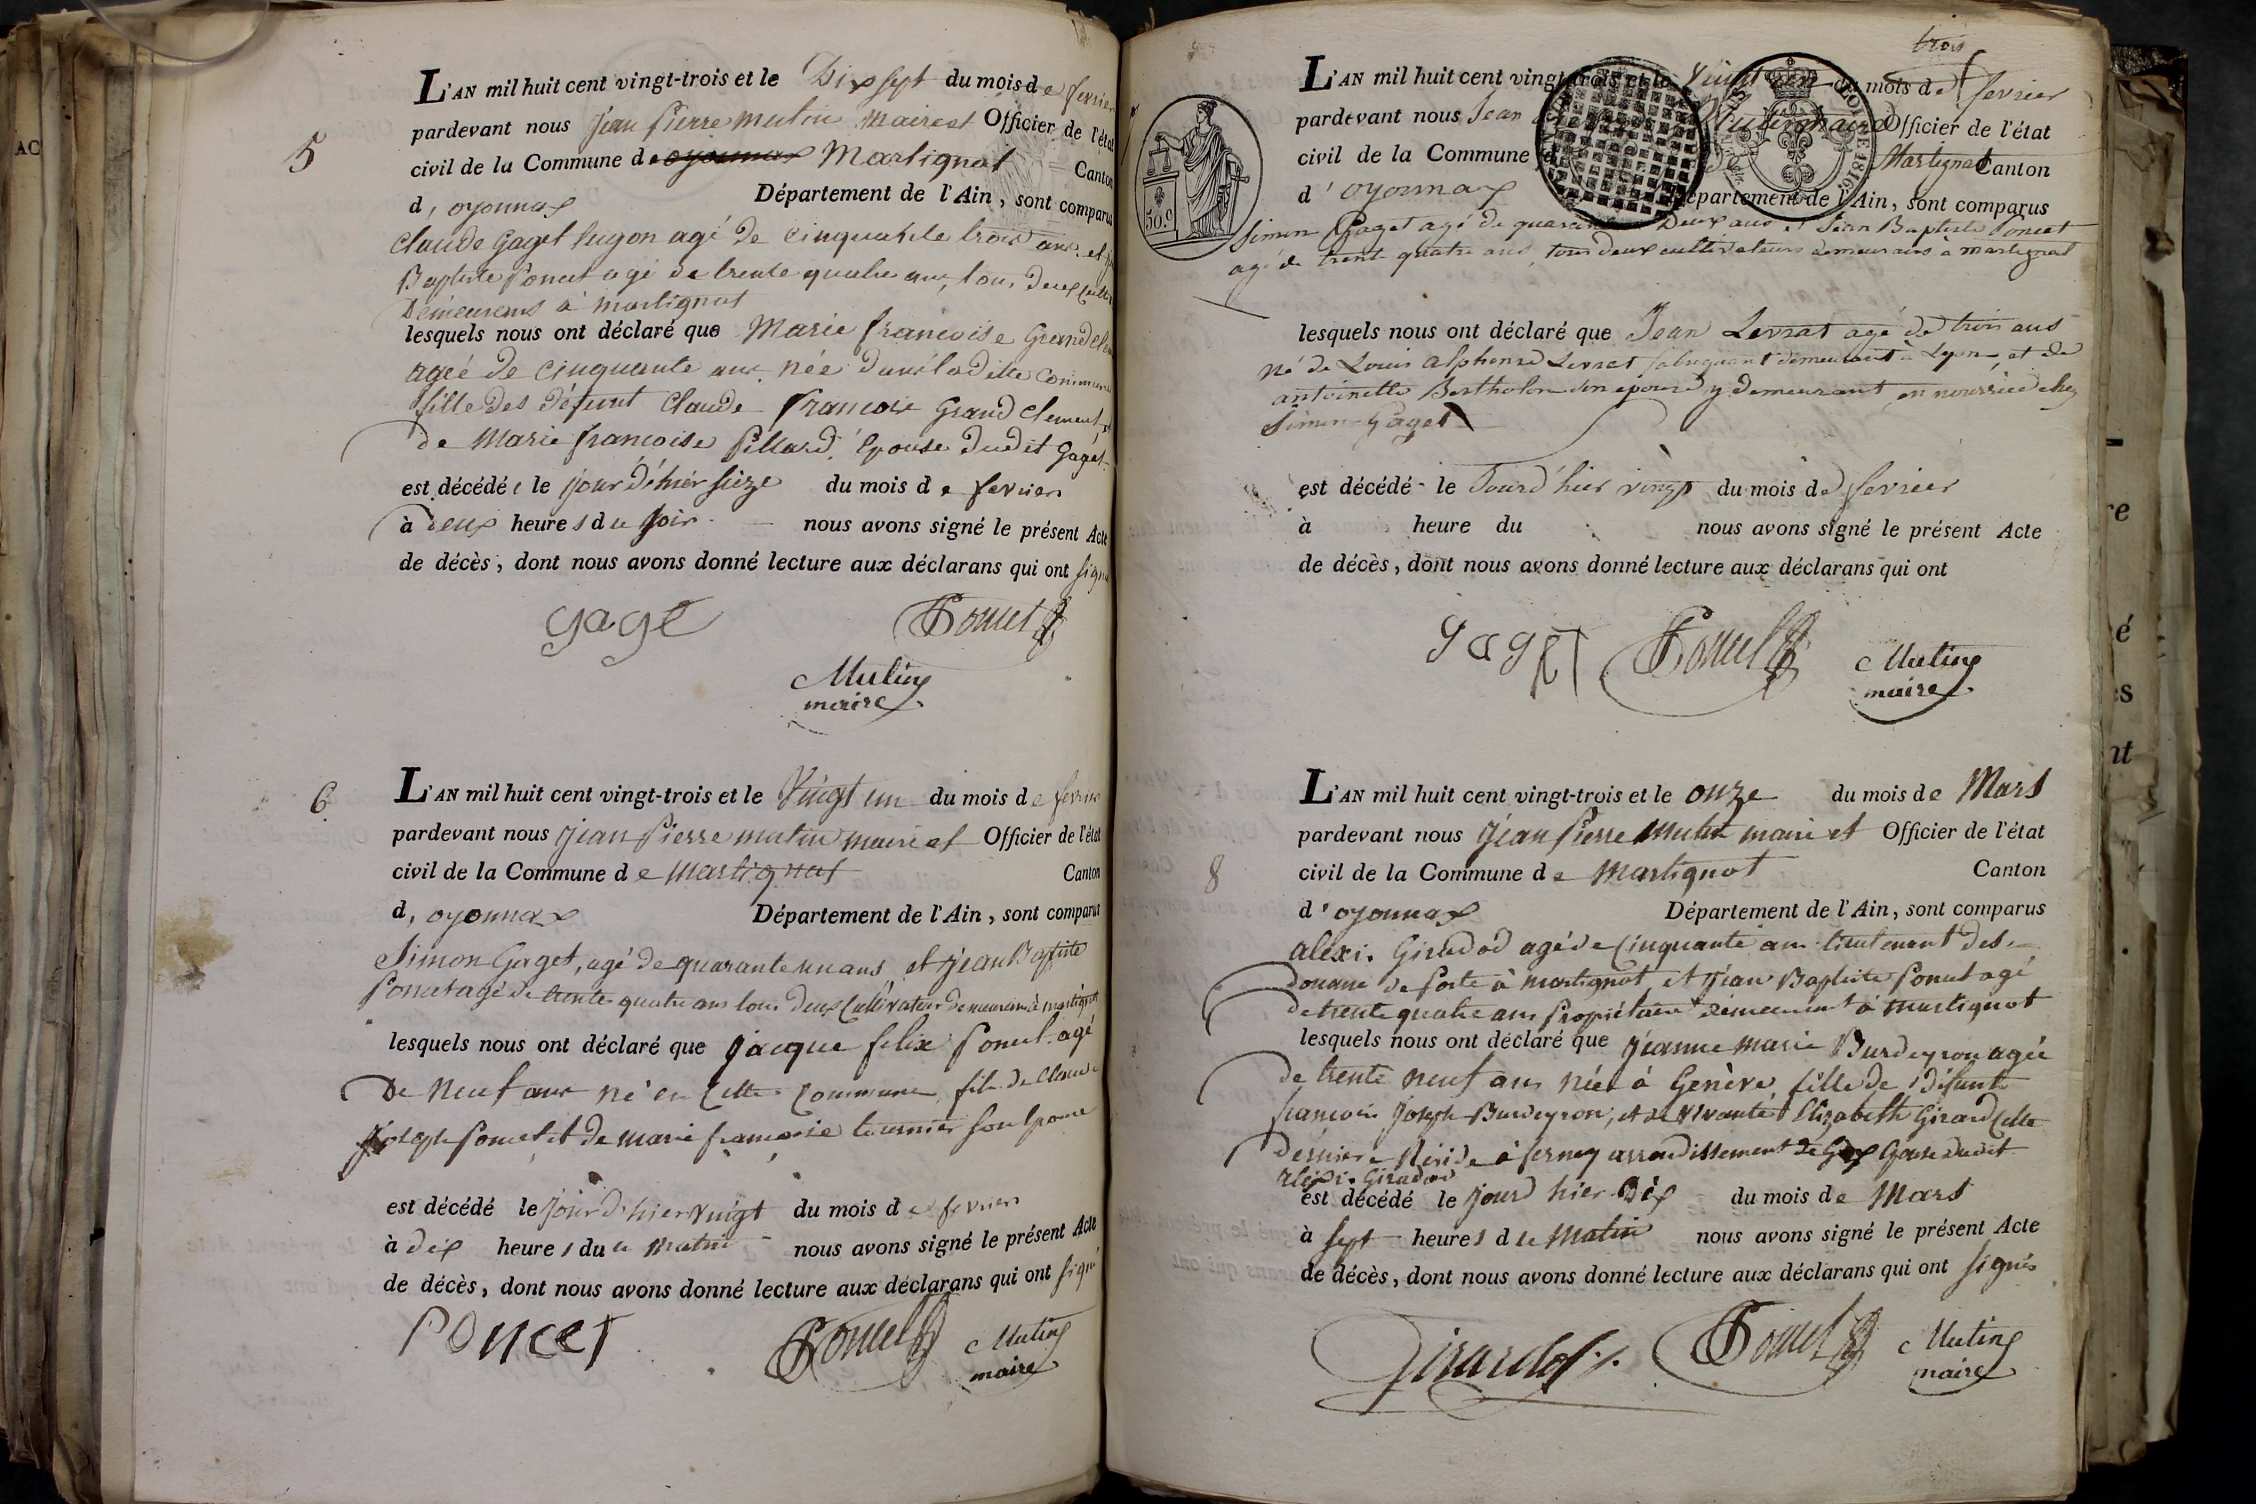 5
L'AN mil huit cent vingt-trois et le Dix sept du mois de fevrier
pardevant nous jean pierre mutin maire et Officier de l'état
civil de la Commune de oyonnax Martignat Canton
d, oyonnax Département de l'Ain, sont comparus
Claude Gaget lugon agé de cinquante trois ans, et
Baptiste Poncet agé de trente quatre ans, tous deux
Demeurans à martignat
lesquels nous ont déclaré que Marie francoise Grand
ageé de cinquante ans née dans laditte commune
fille des défunt Claude francois Grand Clement et
de Marie francoise Pillard, Epouse dudit Gaget
est décédée le jour d'hier seize du mois de fevrier
à deux heures du soir nous avons signé le présent Acte
de décès, dont nous avons donné lecture aux déclarans qui ont signé
gage Poncet
Mutin
maire
6
L'AN mil huit cent vingt-trois et le Vingt un du mois de fevrier
pardevant nous jean pierre mutin maire et Officier de l'état
civil de la Commune de Martignat Canton
d, oyonnax Département de l'Ain, sont comparus
Simon Gaget, agé de quarante un ans et jean Baptiste
Poncet agé de trente quatre ans tous deux Cultivateurs demeurans à martignat
lesquels nous ont déclaré que jacque felix Poncet agé
De Neuf ans né en Cette Commune, fils de Claude
joseph Poncet et de marie francoise tournier son Epouse
est décédé le jour d'hier vingt du mois de fevrier
à dix heures du matin nous avons signé le présent Acte
de décès, dont nous avons donné lecture aux déclarans qui ont signé
PONCET Poncet Mutin
maire
trois
L'AN mil huit cent vingt-trois et le Vingt un du mois de fevrier
pardevant nous Jean Mutin maire Officier de l'état
civil de la Commune Martignat Canton
d'oyonnax Département de l'Ain, sont comparus
50.c
Simon Gaget agé de quarante Deux ans et Jean Baptiste Poncet
agé de trente quatre ans, tous deux cultivateurs demeurans à martignat
lesquels nous ont déclaré que Jean Levrat agé de trois ans
né de Louis alphonse Levrat fabriquant demeurant à Lyon, et de
antoinette Bertholon son epouse y demeurant en nourrice chez
Simon Gaget
est décédé le Jour d'hier vingt du mois de fevrier
à heure du nous avons signé le présent Acte
de décès, dont nous avons donné lecture aux déclarans qui ont
gaget Poncet Mutin
maire
8
L'AN mil huit cent vingt-trois et le onze du mois de Mars
pardevant nous jean Pierre Mutin maire et Officier de l'état
civil de la Commune de Martignat Canton
d'oyonnax Département de l'Ain, sont comparus
alexi. Girardod agé de Cinquante ans lieutenant des
douane de Poste à martignat, et jean Baptiste Poncet agé
de trente quatre ans propriétaire demeurant à martignat
lesquels nous ont déclaré que jeanne marie Burdeyron agée
de trente neuf ans née à Genève, fille de défunt
francois Joseph Burdeyron, et de vivante Elizabeth Girard Cette
dérniere Réside à ferney arrondissement de Gex Epouse dudit
alexi. Girardod
est décédé le jour d'hier Dix du mois de Mars
à sept heures du Matin nous avons signé le présent Acte
de décès, dont nous avons donné lecture aux déclarans qui ont signés
Girardot Poncet Mutin
maire